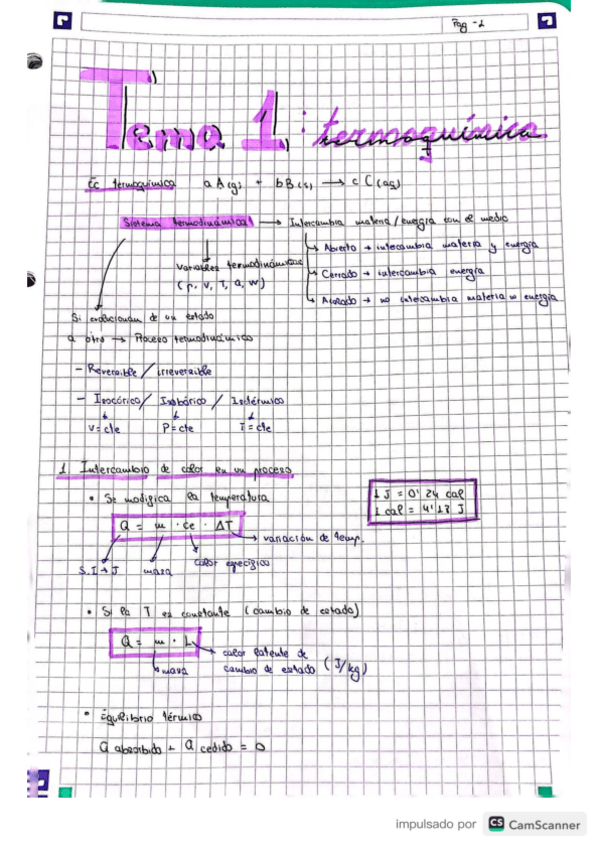 Pag -1
Tema 1: termoquímica
Ec termoquímica aA(g) + bB(s) → cC(aq)
Sistema termodinámico → Intercambia materia/energía con el medio
↳ Abierto → intercambia materia y energía
Variables termodinámicas
(P, V, T, Q, W)
↳ Cerrado → intercambia energía
↳ Aislado → no intercambia materia ni energía
Si evolucionan de un estado
a otro → Proceso termodinámico
- Reversible / irreversible
- Isocórico / Isobárico / Isotérmico
V=cte P=cte T=cte
1 Intercambio de calor en un proceso
• Se modifica la temperatura
1 J = 0'24 cal
1 cal = 4'18 J
Q = m · ce · ΔT
→ variación de temp.
S.I → J masa calor específico
• Si la T es constante (cambio de estado)
Q = m · L
calor latente de
cambio de estado (J/kg)
masa
• Equilibrio térmico
Q absorbido + Q cedido = 0
impulsado por CS CamScanner